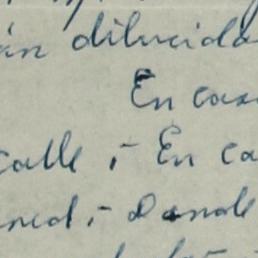 án dilucida
En cas
calle ;- En ca
ned ;- Donde